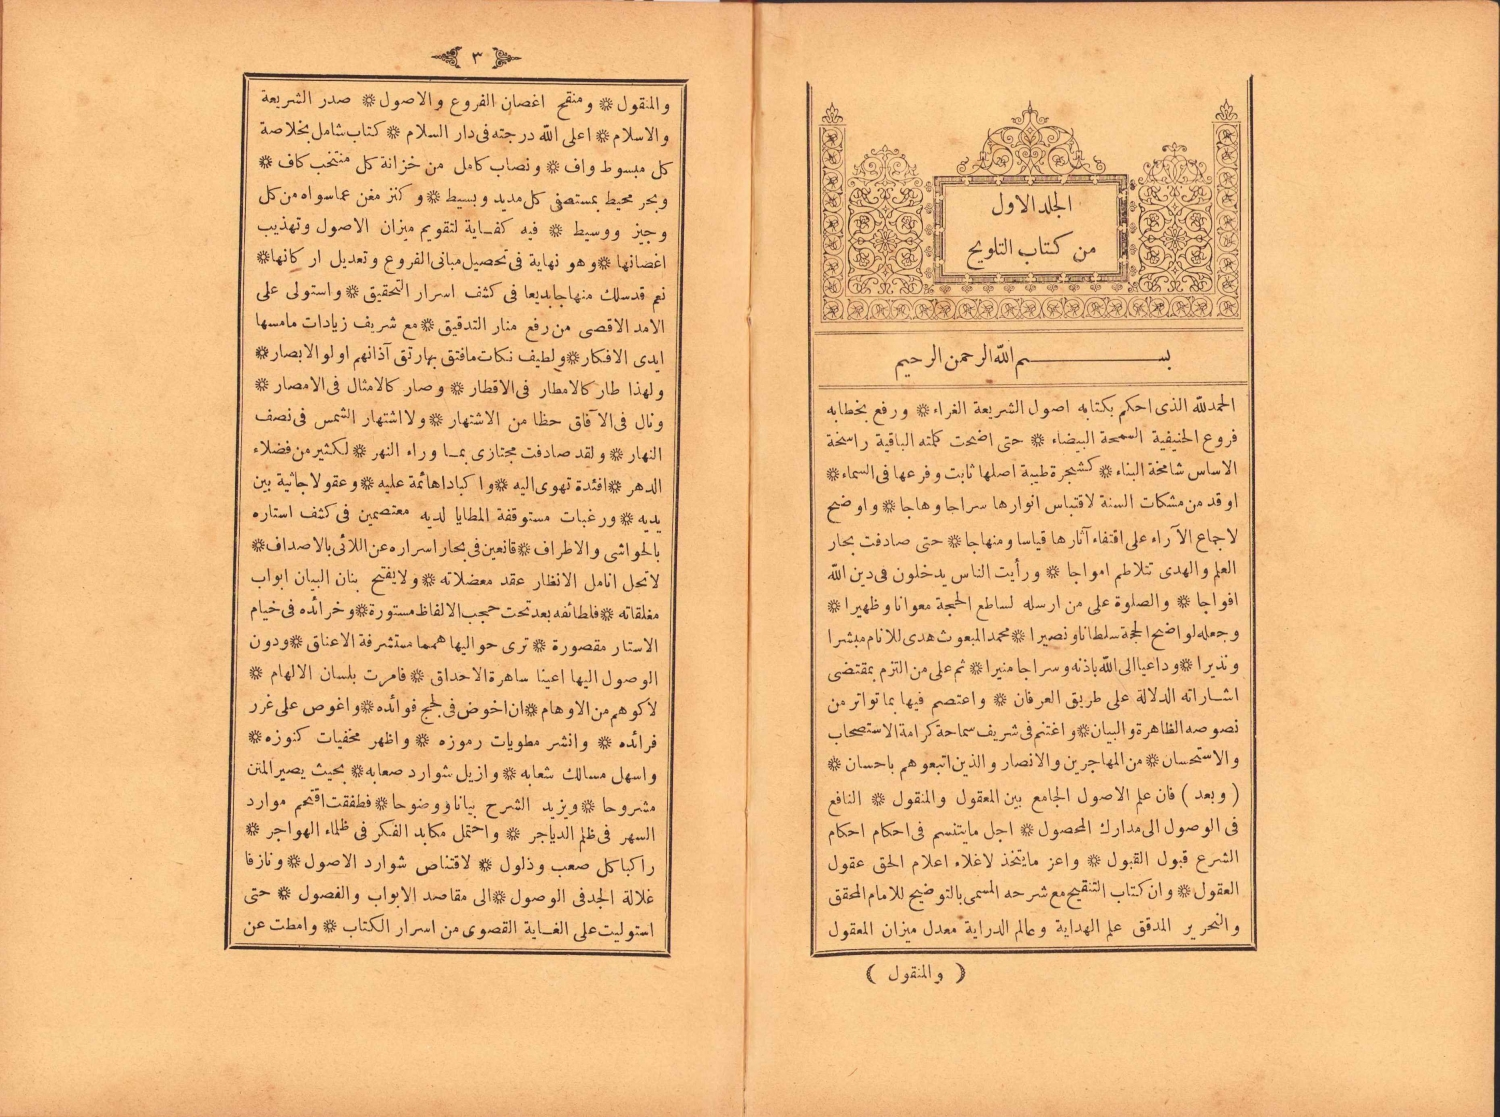 الجلد الاول
من كتاب التلويح
بسم الله الرحمن الرحيم
الحمدلله الذى احكم بكتابه اصول الشريعة الغراء ❋ ورفع بخطابه
فروع الحنيفية السمحة البيضاء ❋ حتى اضحت كلمته الباقية راسخة
الاساس شامخة البناء ❋ كشجرة طيبة اصلها ثابت وفرعها فى السماء ❋
اوقد من مشكات السنة لاقتباس انوارها سراجا وهاجا ❋ واوضح
لاجماع الآراء على اقتفاء آثارها قياسا ومنهاجا ❋ حتى صادفت بحار
العلم والهدى تتلاطم امواجا ❋ ورأيت الناس يدخلون فى دين الله
افواجا ❋ والصلوة على من ارسله لساطع الحجة معوانا وظهيرا ❋
وجعله لواضح المحجة سلطانا ونصيرا ❋ محمد المبعوث هدى للانام مبشرا
ونذيرا ❋ وداعيا الى الله باذنه وسراجا منيرا ❋ ثم على من التزم بمقتضى
اشاراته الدلالة على طريق العرفان ❋ واعتصم فيها بما تواتر من
نصوصه الظاهرة والبيان ❋ واغتنم فى شريف سماحة كرامة الاستصحاب
والاستحسان ❋ من المهاجرين والانصار والذين اتبعوهم باحسان ❋
( وبعد ) فان علم الاصول الجامع بين المعقول والمنقول ❋ النافع
فى الوصول الى مدارك المحصول ❋ اجل ما يتنسم فى احكام احكام
الشرع قبول القبول ❋ واعز ما يتخذ لاغلاء اعلام الحق عقول
العقول ❋ وان كتاب التنقيح مع شرحه المسمى بالتوضيح للامام المحقق
والنحرير المدقق علم الهداية وعالم الدراية معدل ميزان المعقول
( والمنقول )
٣
والمنقول ❋ ومنقح اغصان الفروع والاصول ❋ صدر الشريعة
والاسلام ❋ اعلى الله درجته فى دار السلام ❋ كتاب شامل بخلاصة
كل مبسوط واف ❋ ونصاب كامل من خزانة كل منتخب كاف ❋
وبحر محيط بمستصفى كل مديد وبسيط ❋ وكنز مغن عما سواه من كل
وجيز ووسيط ❋ فيه كفاية لتقويم ميزان الاصول وتهذيب
اغصانها ❋ وهو نهاية فى تحصيل مبانى الفروع وتعديل اركانها ❋
نعم قد سلك منهاجا بديعا فى كشف اسرار التحقيق ❋ واستولى على
الامد الاقصى من رفع منار التدقيق ❋ مع شريف زيادات ما مسها
ايدى الافكار ❋ ولطيف نكات ما فتق بها رتق آذانهم اولو الابصار ❋
ولهذا طار كالامطار فى الاقطار ❋ وصار كالامثال فى الامصار ❋
ونال فى الآفاق حظا من الاشتهار ❋ ولا اشتهار الشمس فى نصف
النهار ❋ ولقد صادفت مجتازى بما وراء النهر ❋ لكثير من فضلاء
الدهر ❋ افئدة تهوى اليه ❋ واكبادا هائمة عليه ❋ وعقولا جاثية بين
يديه ❋ ورغبات مستوقفة المطايا لديه معتصمين فى كشف استاره
بالحواشى والاطراف ❋ قانعين فى بحار اسراره عن اللآلئ بالاصداف ❋
لا تحل انامل الانظار عقد معضلاته ❋ ولا يفتح بنان البيان ابواب
مغلقاته ❋ فلطائفه بعد تحت حجب الالفاظ مستورة ❋ وخرائده فى خيام
الاستار مقصورة ❋ ترى حواليها همما مستشرفة الاعناق ❋ ودون
الوصول اليها اعينا ساهرة الاحداق ❋ فامرت بلسان الالهام ❋
لا كوهم من الاوهام ❋ ان اخوض فى لجج فوائده ❋ واغوص على غرر
فرائده ❋ وانشر مطويات رموزه ❋ واظهر مخفيات كنوزه ❋
واسهل مسالك شعابه ❋ وازيل شوارد صعابه ❋ بحيث يصير المتن
مشروحا ❋ ويزيد الشرح بيانا ووضوحا ❋ فطفقت اقتحم موارد
السهر فى ظلم الدياجر ❋ واحتمل مكابد الفكر فى ظماء الهواجر ❋
راكبا كل صعب وذلول ❋ لاقتناص شوارد الاصول ❋ ونازفا
غلالة الجد فى الوصول ❋ الى مقاصد الابواب والفصول ❋ حتى
استوليت على الغاية القصوى من اسرار الكتاب ❋ وامطت عن